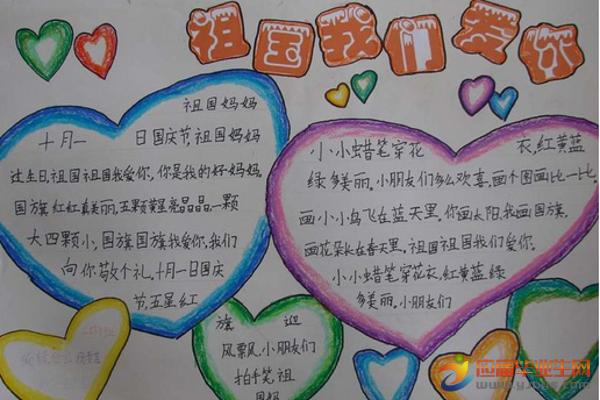 祖国我们爱你
祖国妈妈
十月一 日国庆节,祖国妈妈
过生日,祖国祖国我爱你,你是我的好妈妈。
国旗红红真美丽,五颗黄星亮晶晶,一颗
大四颗小,国旗国旗我爱你,我们
向你敬个礼,十月一日国庆
节,五星红
旗 迎
风飘飘,小朋友们
拍手笑,祖
国妈
小小蜡笔穿花 衣,红黄蓝
绿多美丽。小朋友们多么欢喜,画个图画比一比。
画小小鸟飞在蓝天里,你画太阳,我画国旗,
画花朵长在春天里,祖国祖国我们爱你。
小小蜡笔穿花衣,红黄蓝绿
多美丽。小朋友们
应届毕业生网